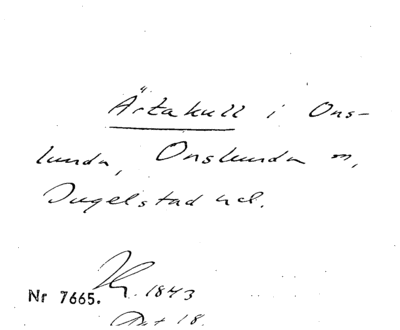 Ärtakull i Ons-
lunda, Onslunda sn,
Ingelstad hd.
Nr 7665. 1843
18.